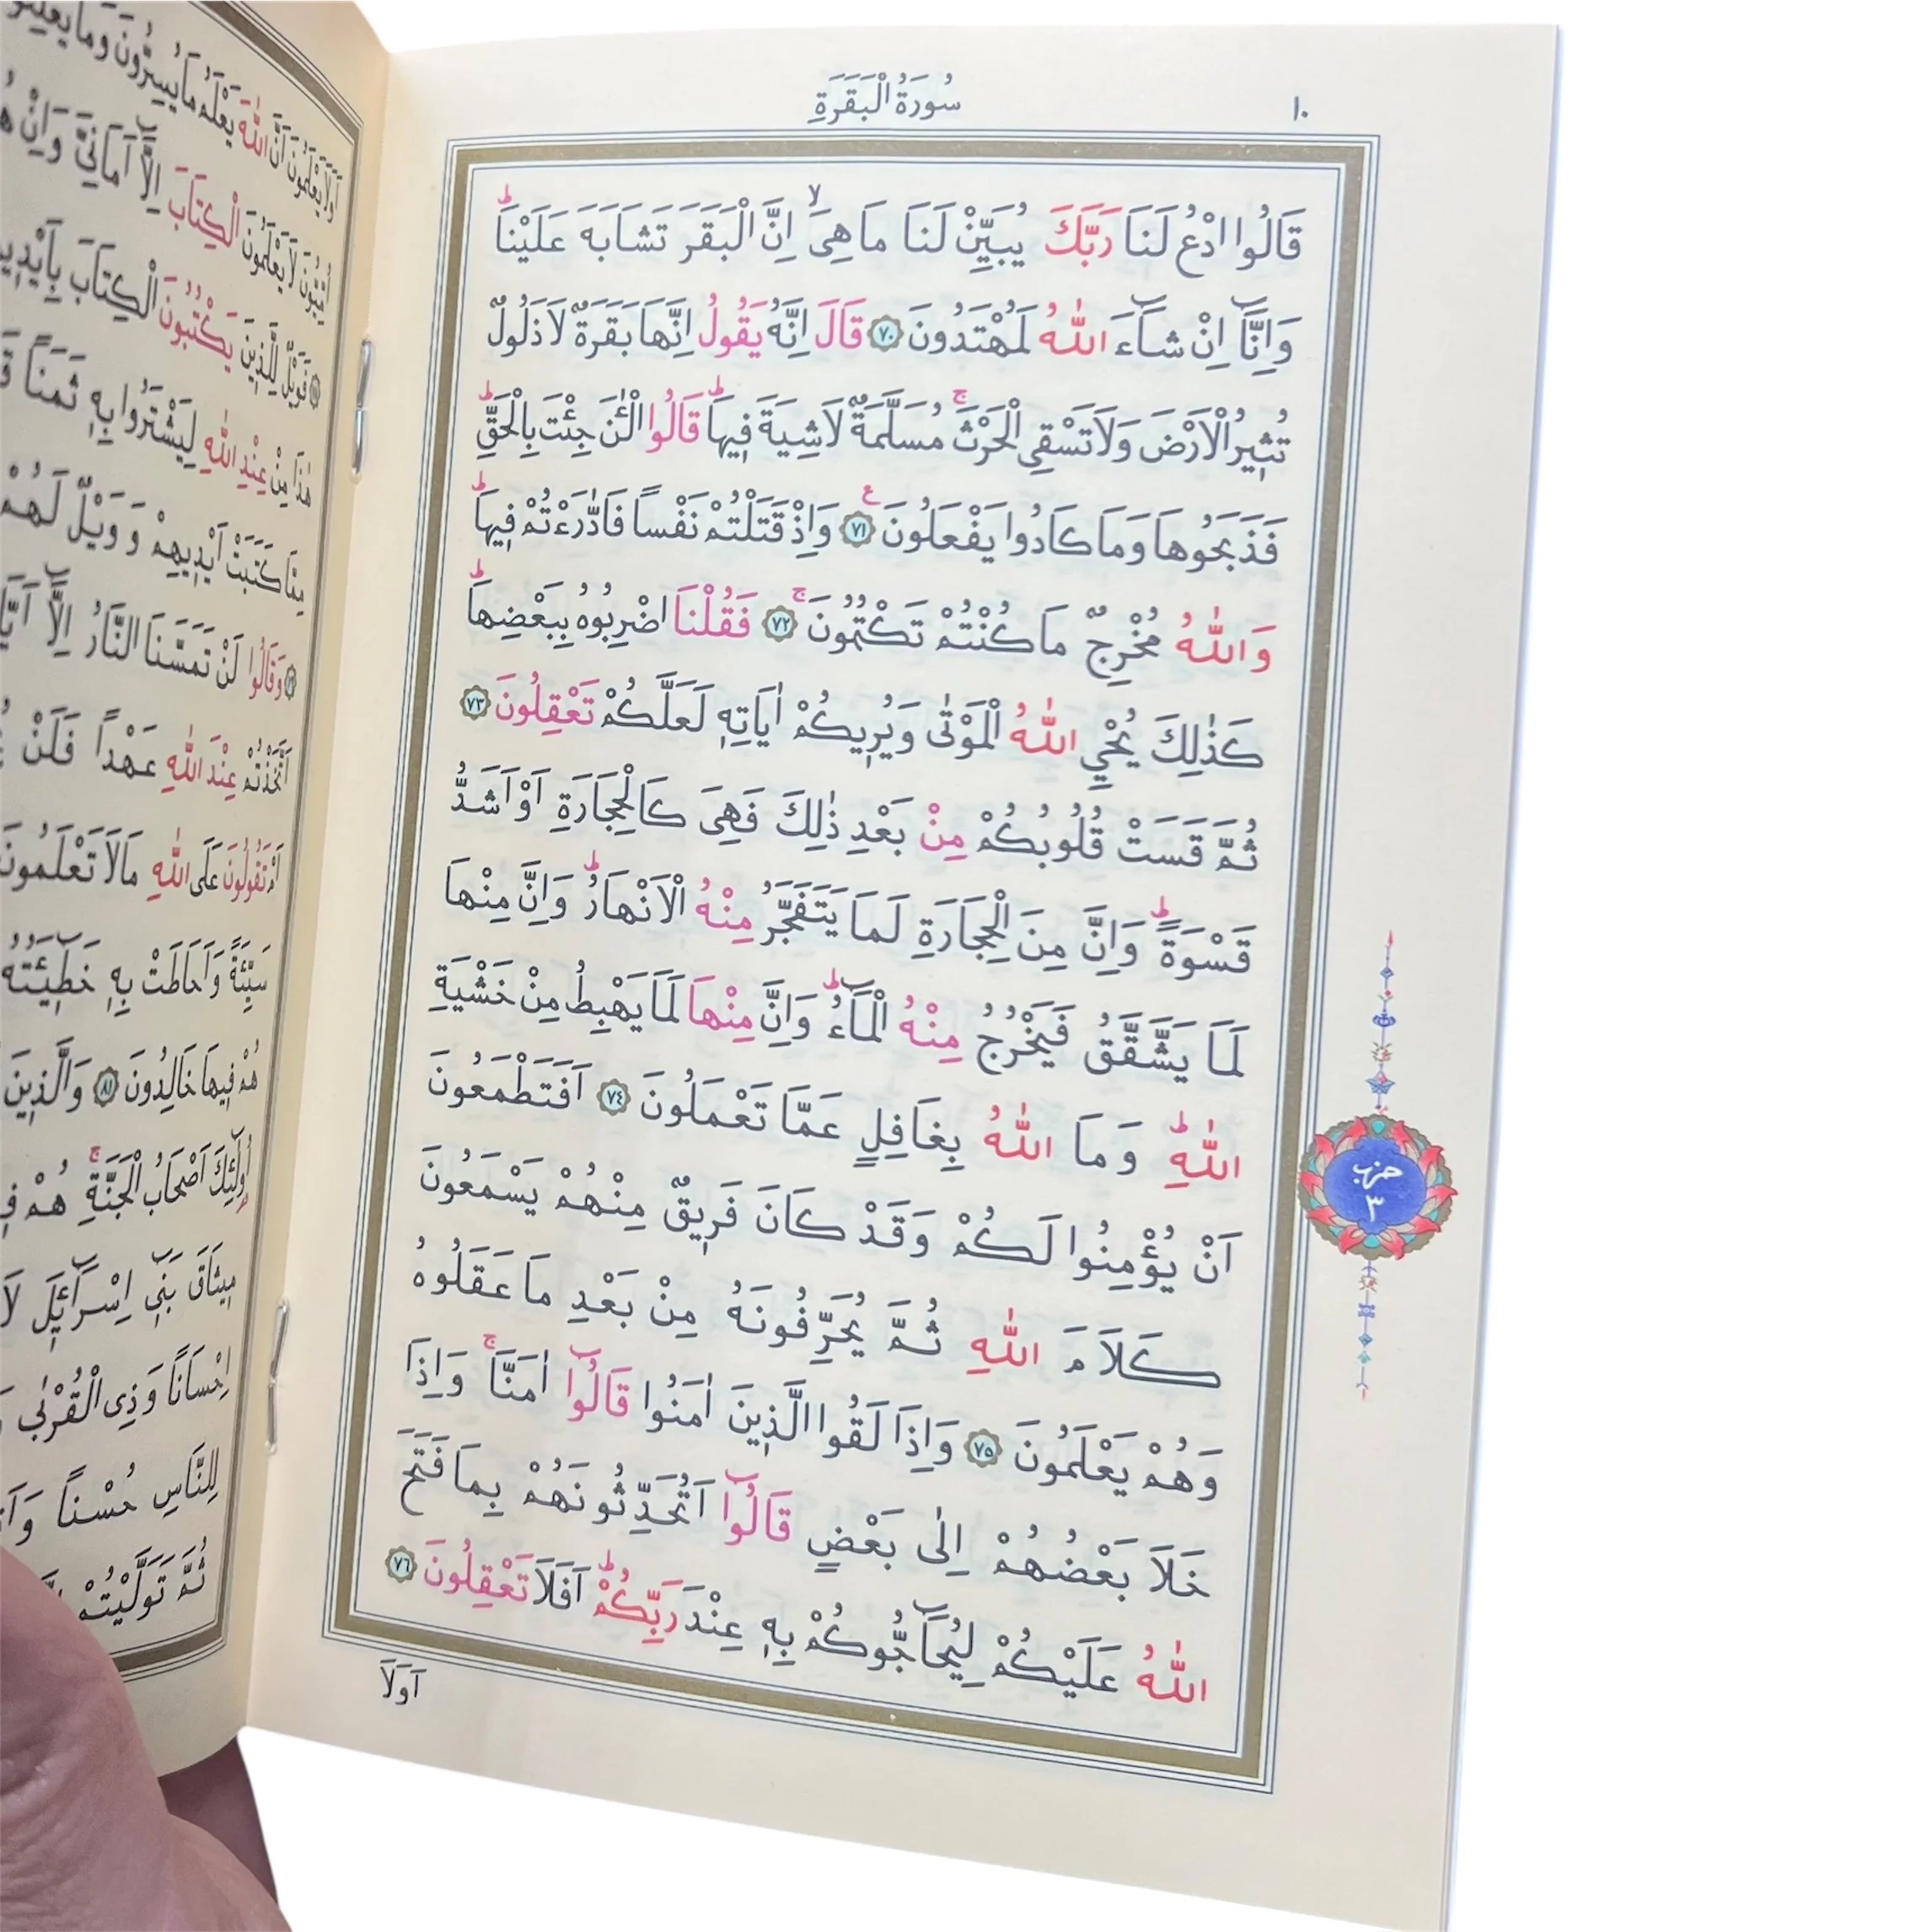 سُورَةُ الْبَقَرَةِ
١٠
قَالُوا ادْعُ لَنَا رَبَّكَ يُبَيِّنْ لَنَا مَا هِيَۙ اِنَّ الْبَقَرَ تَشَابَهَ عَلَيْنَاۜ
وَاِنَّٓا اِنْ شَٓاءَ اللّٰهُ لَمُهْتَدُونَ ﴿٧٠﴾ قَالَ اِنَّهُ يَقُولُ اِنَّهَا بَقَرَةٌ لَا ذَلُولٌ
تُثٖيرُ الْاَرْضَ وَلَا تَسْقِي الْحَرْثَۚ مُسَلَّمَةٌ لَا شِيَةَ فٖيهَاۜ قَالُوا الْـٰٔنَ جِئْتَ بِالْحَقِّۜ
فَذَبَحُوهَا وَمَا كَادُوا يَفْعَلُونَ ﴿٧١﴾ ع وَاِذْ قَتَلْتُمْ نَفْساً فَادّٰرَءْتُمْ فٖيهَاۜ
وَاللّٰهُ مُخْرِجٌ مَا كُنْتُمْ تَكْتُمُونَۚ ﴿٧٢﴾ فَقُلْنَا اضْرِبُوهُ بِبَعْضِهَاۜ
كَذٰلِكَ يُحْيِي اللّٰهُ الْمَوْتٰى وَيُرٖيكُمْ اٰيَاتِهٖ لَعَلَّكُمْ تَعْقِلُونَ ﴿٧٣﴾
ثُمَّ قَسَتْ قُلُوبُكُمْ مِنْ بَعْدِ ذٰلِكَ فَهِيَ كَالْحِجَارَةِ اَوْ اَشَدُّ
قَسْوَةًۜ وَاِنَّ مِنَ الْحِجَارَةِ لَمَا يَتَفَجَّرُ مِنْهُ الْاَنْهَارُۜ وَاِنَّ مِنْهَا
لَمَا يَشَّقَّقُ فَيَخْرُجُ مِنْهُ الْمَٓاءُۜ وَاِنَّ مِنْهَا لَمَا يَهْبِطُ مِنْ خَشْيَةِ
اللّٰهِۜ وَمَا اللّٰهُ بِغَافِلٍ عَمَّا تَعْمَلُونَ ﴿٧٤﴾ اَفَتَطْمَعُونَ
اَنْ يُؤْمِنُوا لَكُمْ وَقَدْ كَانَ فَرٖيقٌ مِنْهُمْ يَسْمَعُونَ
كَلَامَ اللّٰهِ ثُمَّ يُحَرِّفُونَهُ مِنْ بَعْدِ مَا عَقَلُوهُ
وَهُمْ يَعْلَمُونَ ﴿٧٥﴾ وَاِذَا لَقُوا الَّذٖينَ اٰمَنُوا قَالُٓوا اٰمَنَّاۚ وَاِذَا
خَلَا بَعْضُهُمْ اِلٰى بَعْضٍ قَالُٓوا اَتُحَدِّثُونَهُمْ بِمَا فَتَحَ
اللّٰهُ عَلَيْكُمْ لِيُحَٓاجُّوكُمْ بِهٖ عِنْدَ رَبِّكُمْۜ اَفَلَا تَعْقِلُونَ ﴿٧٦﴾
اَوَلَا
حزب
٣
اَوَلَا يَعْلَمُونَ اَنَّ اللّٰهَ يَعْلَمُ مَا يُسِرُّونَ وَمَا يُعْلِنُونَ
اُمِّيُّونَ لَا يَعْلَمُونَ الْكِتَابَ اِلَّٓا اَمَانِيَّ وَاِنْ
فَوَيْلٌ لِلَّذٖينَ يَكْتُبُونَ الْكِتَابَ بِاَيْدٖيهِمْ
هٰذَا مِنْ عِنْدِ اللّٰهِ لِيَشْتَرُوا بِهٖ ثَمَناً
مِمَّا كَتَبَتْ اَيْدٖيهِمْ وَوَيْلٌ لَهُمْ
وَقَالُوا لَنْ تَمَسَّنَا النَّارُ اِلَّٓا
اَتَّخَذْتُمْ عِنْدَ اللّٰهِ عَهْداً فَلَنْ
اَمْ تَقُولُونَ عَلَى اللّٰهِ مَا لَا تَعْلَمُونَ
سَيِّئَةً وَاَحَاطَتْ بِهٖ خَطٖيـَٔتُهُ
هُمْ فٖيهَا خَالِدُونَ ﴿٨١﴾ وَالَّذٖينَ
اُولٰٓئِكَ اَصْحَابُ الْجَنَّةِۚ هُمْ
مٖيثَاقَ بَنٖٓي اِسْرَٓائٖلَ لَا
اِحْسَاناً وَذِي الْقُرْبٰى
لِلنَّاسِ حُسْناً
ثُمَّ تَوَلَّيْتُمْ